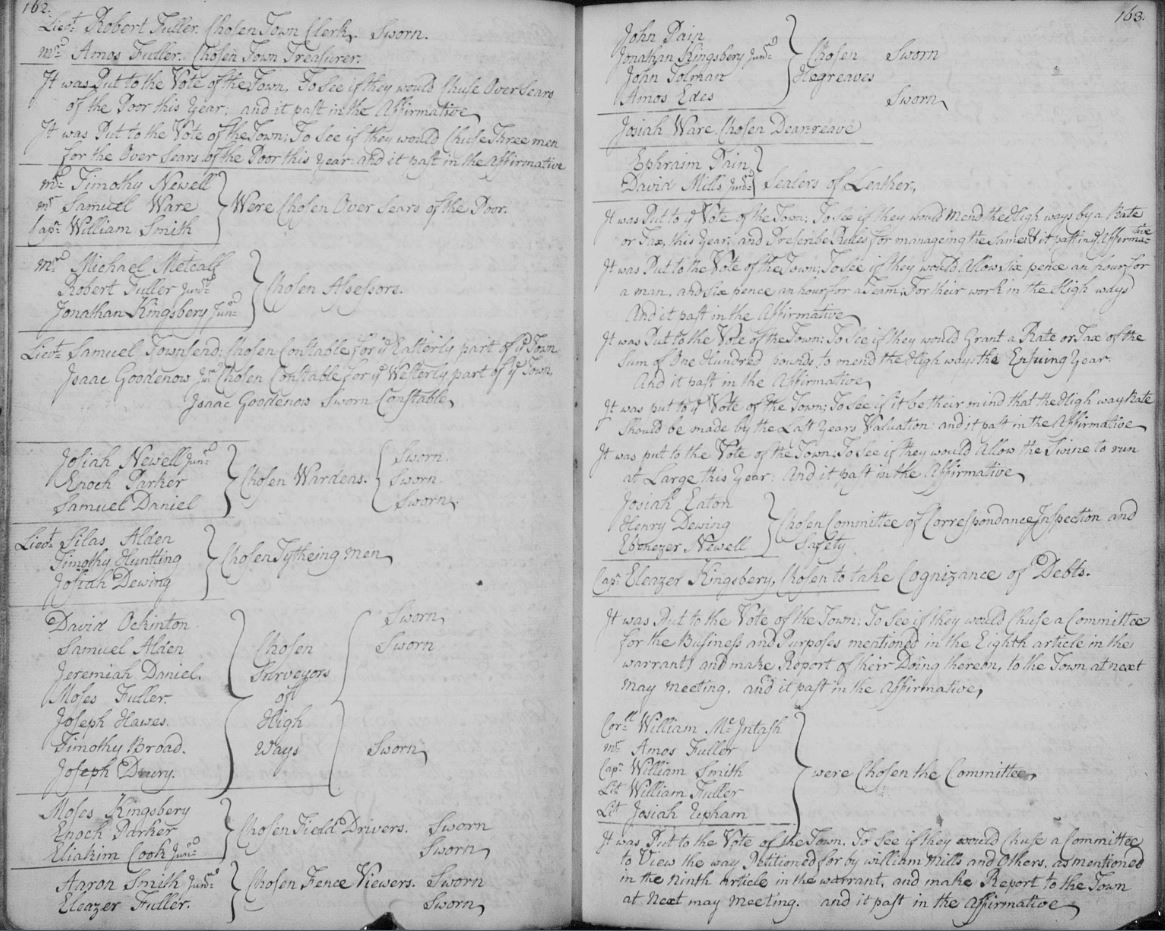 162.
Lieut. Robert Fuller. Chosen Town Clerk, Sworn.
mr. Amos Fuller. Chosen Town Treasurer.
It was Put to the Vote of the Town, To See if they would Chuse Over Sears
of the Poor this Year; and it past in the Affirmative
It was Put to the Vote of the Town; To See if they would Chuse Three men
for the Over Sears of the Poor this Year and it past in the Affirmative
mr. Timothy Newell
mr Samuel Ware
Capt. William Smith
Were Chosen Over Sears of the Poor.
mr. Michael Metcalf
Robert Fuller Junr.
Jonathan Kingsbery Junr.
Chosen Assessors.
Lieut. Samuel Townsend; Chosen Constable for ye Easterly part of ye Town
Isaac Goodenow Junr Chosen Constable for ye Westerly part of ye Town,
Isaac Goodenow Sworn Constable,
Josiah Newell Junr.
Enoch Parker
Samuel Daniel
Chosen Wardens.
Sworn.
Sworn.
Sworn.
Lieut. Silas Alden
Timothy Huntting
Josiah Dewing
Chosen Tytheing men
David Ockinton.
Samuel Alden
Jeremiah Daniel.
Moses Fuller.
Joseph Hawes.
Timothy Broad.
Joseph Drury.
Chosen
Surveyors
of
High
Ways
Sworn
Sworn
Sworn,
Moses Kingsbery
Enoch Parker
Eliakim Cook Junr.
Chosen Field Drivers. Sworn
Sworn,
Aaron Smith Junr.
Eleazer Fuller.
Chosen Fence Viewers. Sworn
Sworn,
163.
John Pain
Jonathan Kingsbery Junr.
John Tolman
Amos Edes
Chosen Sworn
Hogreaves
Sworn,
Josiah Ware Chosen Deanreave
Ephraim Pain
David Mills Junr.
Sealers of Leather,
It was Put to ye Vote of the Town; To See if they would Mend the High ways by a Rate
or Tax, this Year, and Prescribe Rules for manageing the Same & it past in ye Affirmative
It was Put to the Vote of the Town; To See if they would Allow six pence an hour for
a man, and six pence an hour for a Team; For their work in the High ways
And it past in the Affirmative
It was Put to the Vote of the Town; To See if they would Grant a Rate or Tax of the
Sum of One Hundred pounds to mend the High ways the Ensuing Year.
And it past in the Affirmative,
It was put to ye Vote of the Town; To See if it be their mind that the High way Rate
Should be made by the Last Years Valuation: and it past in the Affirmative
It was put to the Vote of the Town To See if they would Allow the Swine to run
at Large this Year: And it past in the Affirmative,
Josiah Eaton
Henry Dewing
Ebenezer Newell
Chosen Committee of Correspondance Inspection and
Safety
Capt. Eleazer Kingsbery, Chosen to take Cognizance of Debts.
It was Put to the Vote of the Town; To See if they would Chuse a Committee
for the Business and Purposes mentioned in the Eighth article in the
warrant; and make Report of their Doing thereon, to the Town at next
may meeting, and it past in the Affirmative,
William Mc Intash
mr. Amos Fuller
Capt. William Smith
Lit William Fuller
Lit Josiah Upham
were Chosen the Committee,
It was Put to the Vote of the Town, To See if they would Chuse a Committee
to View the way Petitioned for by William Mills and Others, as mentioned
in the ninth article in the warrant, and make Report to the Town
at next may meeting. and it past in the Affirmative